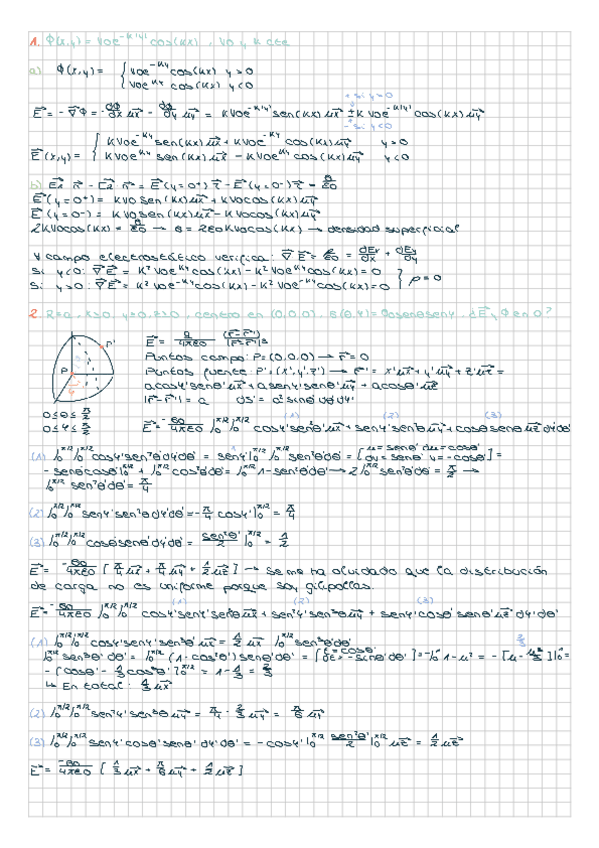 1. Φ(x,y) = V0e^-K|y| cos(Kx) , V0 y K cte
a) Φ(x,y) = { V0e^-Ky cos(Kx) y>0
V0e^Ky cos(Kx) y<0
+ si y>0
E⃗ = -∇⃗Φ = -dΦ/dx ux⃗ - dΦ/dy uy⃗ = KV0e^-K|y| sen(Kx) ux⃗ ± KV0e^-K|y| cos(Kx) uy⃗
- si y<0
E⃗(x,y) = { KV0e^-Ky sen(Kx) ux⃗ + KV0e^-Ky cos(Kx) uy⃗ y>0
KV0e^Ky sen(Kx) ux⃗ - KV0e^Ky cos(Kx) uy⃗ y<0
b) E⃗1 n⃗ - E⃗2 n⃗ = E⃗(y=0+) - E⃗(y=0-)
E⃗(y=0+) = KV0 sen(Kx) ux⃗ + KV0cos(Kx) uy⃗
E⃗(y=0-) = KV0 sen(Kx) ux⃗ - KV0cos(Kx) uy⃗
2KV0cos(Kx) = σ/ε0 → σ = 2ε0KV0cos(Kx) → densidad superficial
∀ campo electrostático verifica: ∇⃗E⃗ = ρ/ε0 = dEx/dx + dEy/dy
Si y<0: ∇⃗E⃗ = K²V0e^Ky cos(Kx) - K²V0e^Ky cos(Kx) = 0
Si y>0: ∇⃗E⃗ = K²V0e^-Ky cos(Kx) - K²V0e^-Ky cos(Kx) = 0 } ρ=0
2. R=a, x>0, y>0, z>0, centro en (0,0,0), σ(θ,φ) = σ0senθsenφ, dE⃗ y Φ en 0?
Puntos campo: P=(0,0,0) → r⃗=0
Puntos fuente: P'=(x',y',z') → r⃗' = x'ux⃗ + y'uy⃗ + z'uz⃗ =
acosφ'senθ'ux⃗ + asenφ'senθ'uy⃗ + acosθ'uz⃗
|r⃗-r⃗'| = a ds' = a²senθ'dθ'dφ'
0≤θ≤π/2
0≤φ≤π/2
(1) (2) (3)
E⃗ = -σ0/4πε0 ∫0^π/2 ∫0^π/2 cosφ'sen²θ'ux⃗ + senφ'sen²θ'uy⃗ + cosθ'senθ'uz⃗ dφ'dθ'
(1) ∫0^π/2 ∫0^π/2 cosφ'sen²θ'dθ'dφ' = senφ'|0^π/2 ∫0^π/2 sen²θ'dθ' = [u=senθ' du=cosθ' dv=senθ' v=-cosθ'] =
-senθcosθ|0^π/2 + ∫0^π/2 cos²θ'dθ' = ∫0^π/2 1-sen²θ'dθ' → 2∫0^π/2 sen²θ'dθ' = π/2 →
∫0^π/2 sen²θ'dθ' = π/4
(2) ∫0^π/2 ∫0^π/2 senφ'sen²θ'dφ'dθ' = -π/4 cosφ'|0^π/2 = π/4
(3) ∫0^π/2 ∫0^π/2 cosθ'senθ'dφ'dθ' = sen²θ'/2 |0^π/2 = 1/2
E⃗ = -σ0/4πε0 [π/4 ux⃗ + π/4 uy⃗ + 1/2 uz⃗] → se me ha olvidado que la distribución
de carga no es uniforme porque soy gilipollas.
(1) (2) (3)
E⃗ = -σ0/4πε0 ∫0^π/2 ∫0^π/2 cosφ'senφ'sen³θ'ux⃗ + sen²φ'sen³θ'uy⃗ + senφ'cosθ'sen²θ'uz⃗ dφ'dθ'
(1) ∫0^π/2 ∫0^π/2 cosφ'senφ'sen³θ'ux⃗ = 1/2 ux⃗ ∫0^π/2 sen³θ'dθ'
∫0^π/2 sen³θ'dθ' = ∫0^π/2 (1-cos²θ')senθ'dθ' =
-[cosθ' - 1/3 cos³θ']0^π/2 = 1 - 1/3 = 2/3
↳ En total: 1/3 ux⃗
(2) ∫0^π/2 ∫0^π/2 sen²φ'sen³θ'uy⃗ = π/4 · 2/3 uy⃗ = π/6 uy⃗
(3) ∫0^π/2 ∫0^π/2 senφ'cosθ'senθ'dφ'dθ' = -cosφ'|0^π/2 sen²θ'/2 |0^π/2 uz⃗ = 1/2 uz⃗
E⃗ = -σ0/4πε0 [1/3 ux⃗ + π/6 uy⃗ + 1/2 uz⃗]